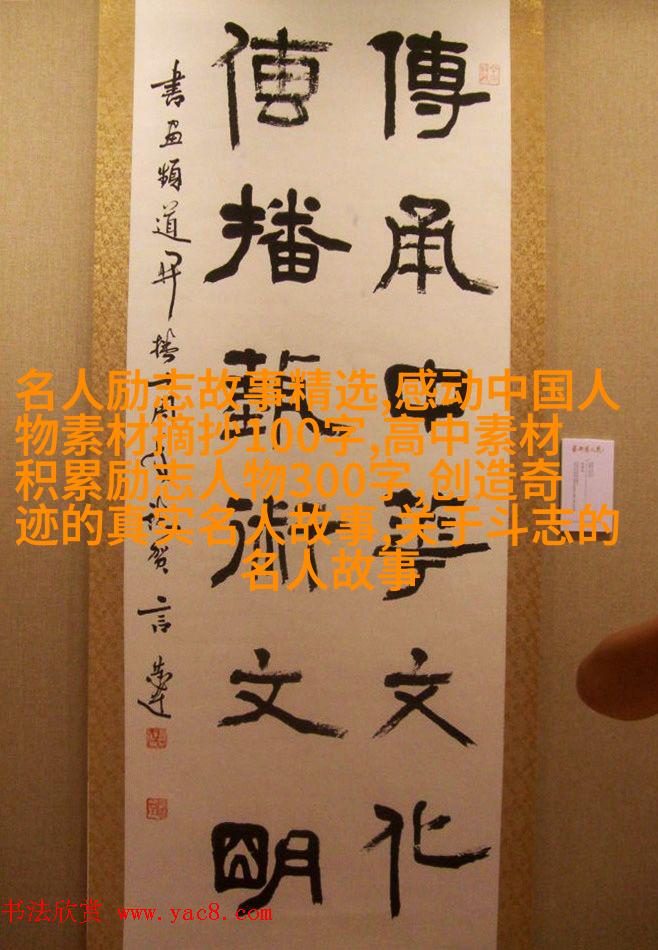 傳承中華文化
傳播藝術文明
書画頻道开播一周年誌賀 言恭達
名人励志故事精选,感动中国人
物素材摘抄100字,高中素材
积累励志人物300字,创造奇
迹的真实名人故事,关于斗志的
名人故事
书法欣赏 www.yac8.com